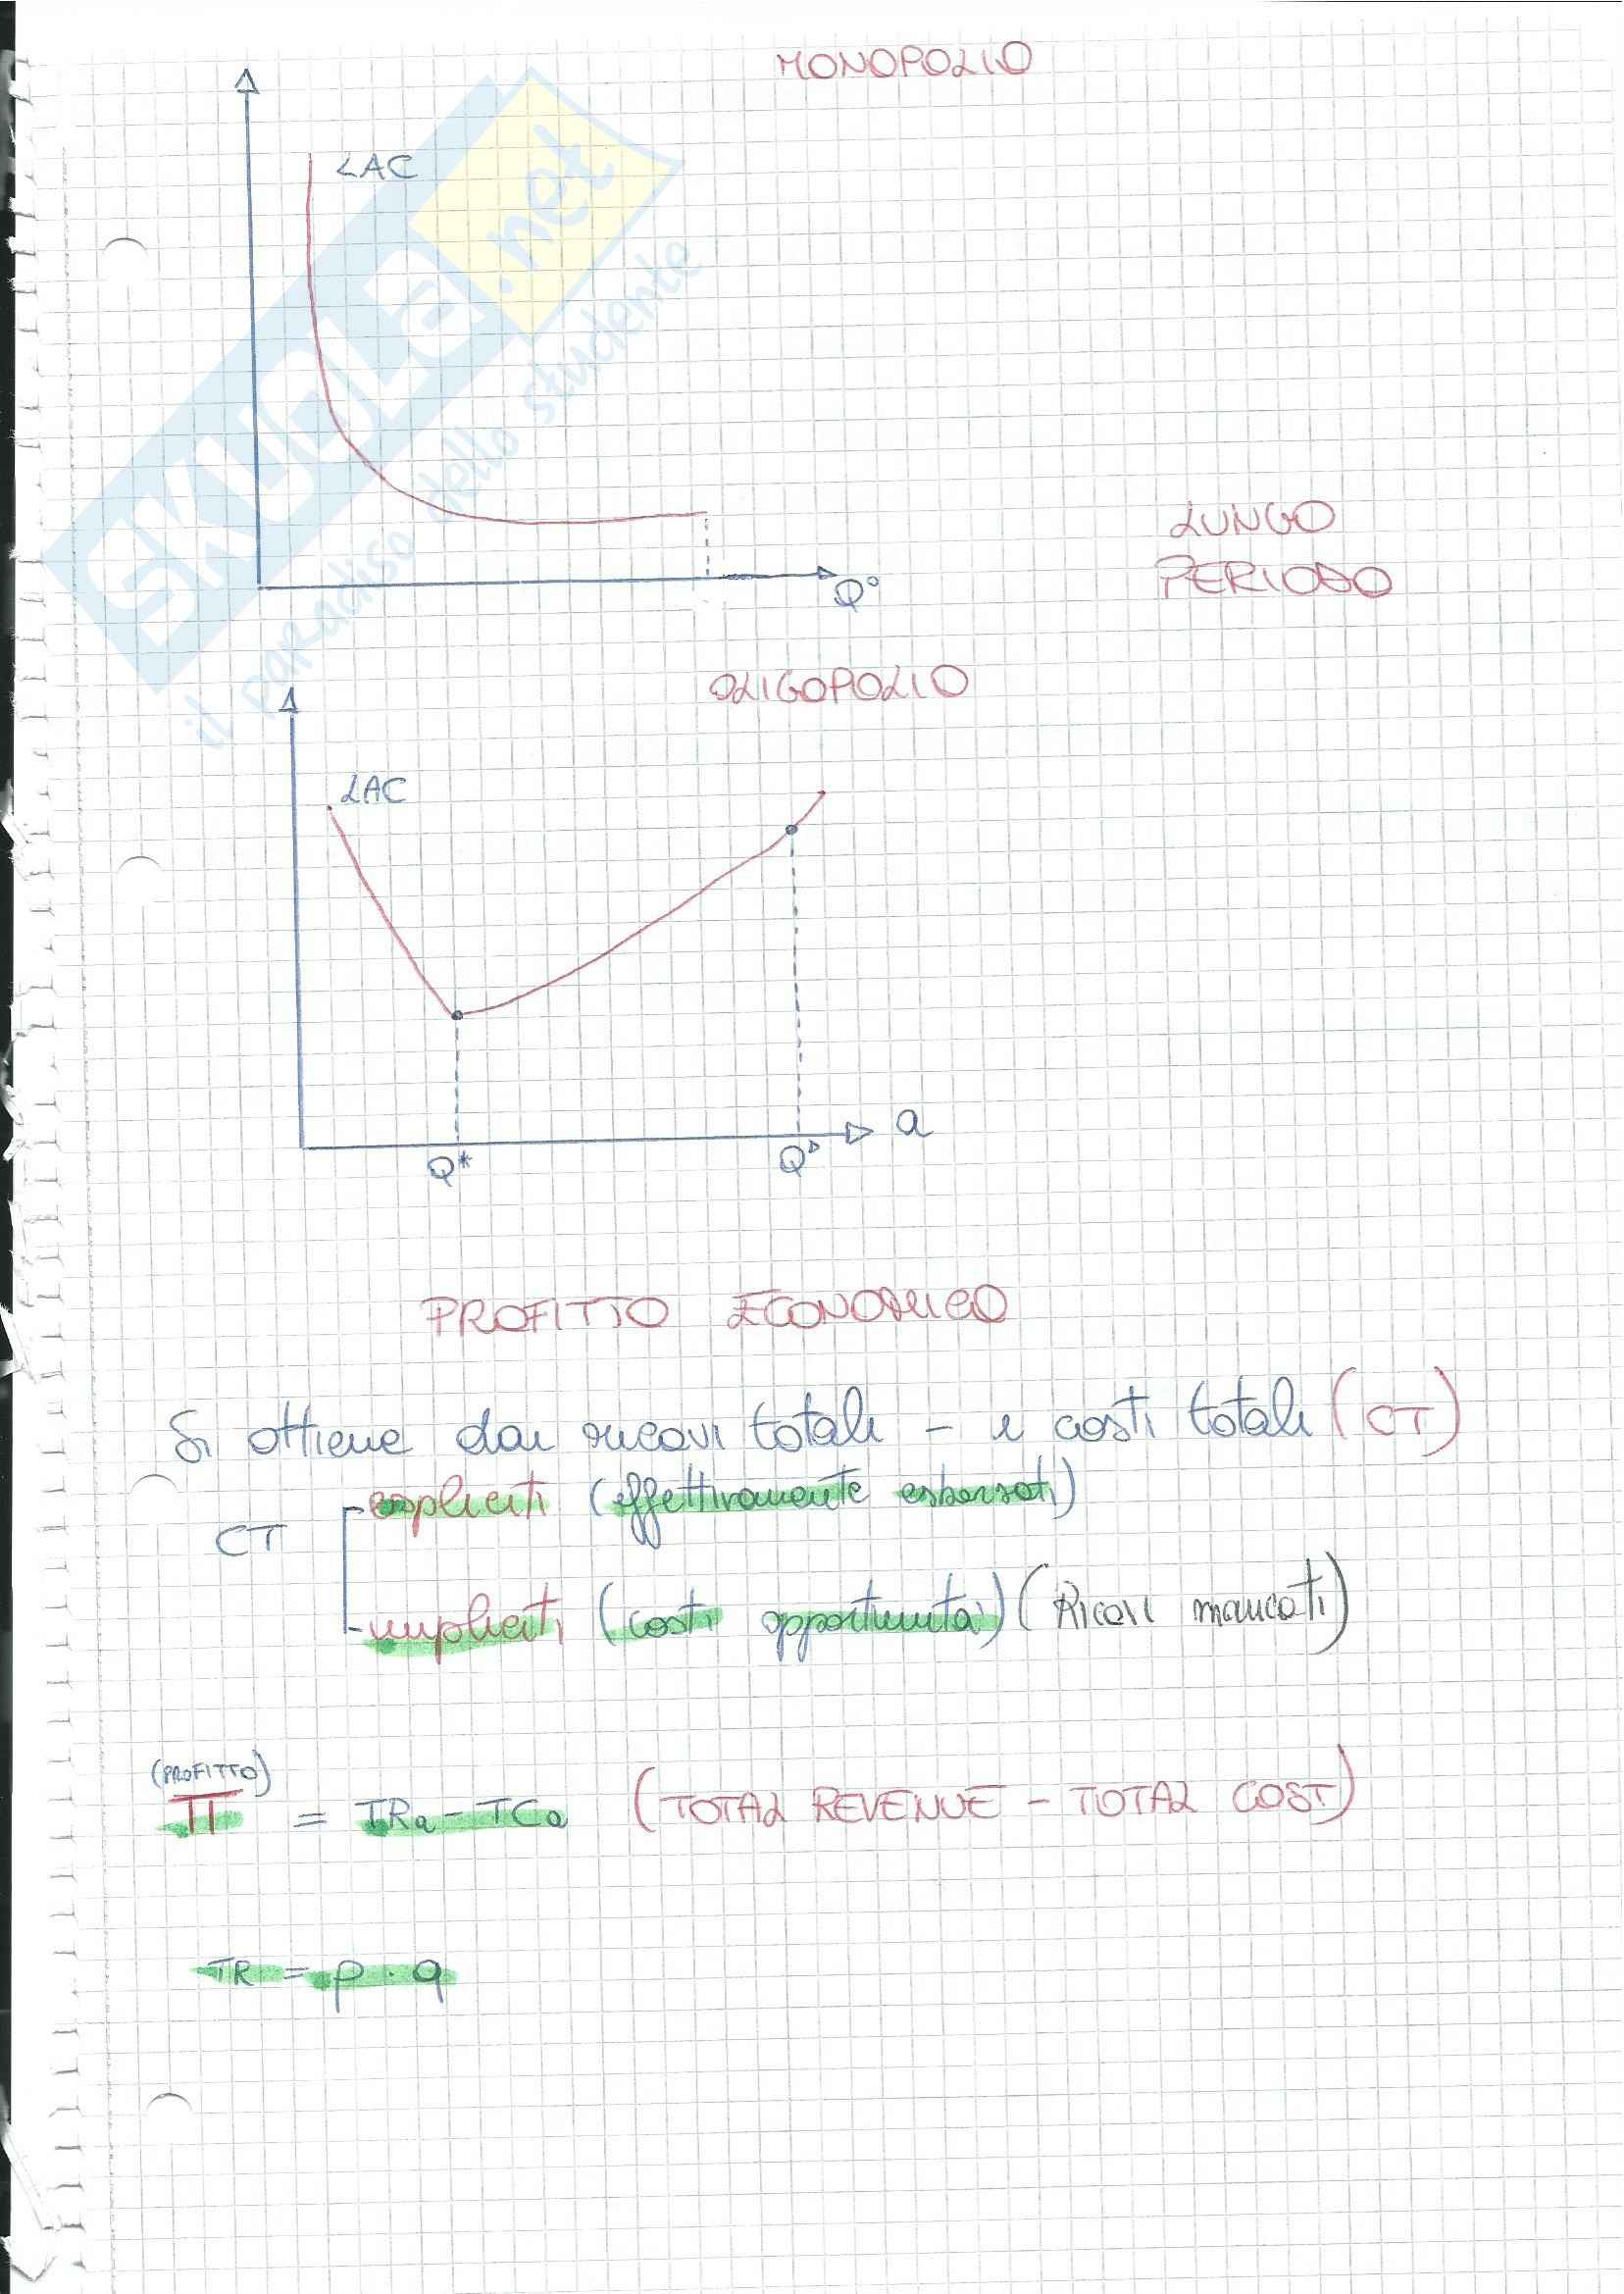 MONOPOLIO
LAC
SKUOLA.net
il paradiso dello studente
LUNGO
PERIODO
Q°
OLIGOPOLIO
LAC
Q
Q*
Q°
PROFITTO ECONOMICO
Si ottiene dai ricavi totali - i costi totali (CT)
espliciti (effettivamente esborsati)
CT
impliciti (costi opportunità) (Ricavi mancati)
(PROFITTO)
π = TRq - TCq (TOTAL REVENUE - TOTAL COST)
TR = p · q